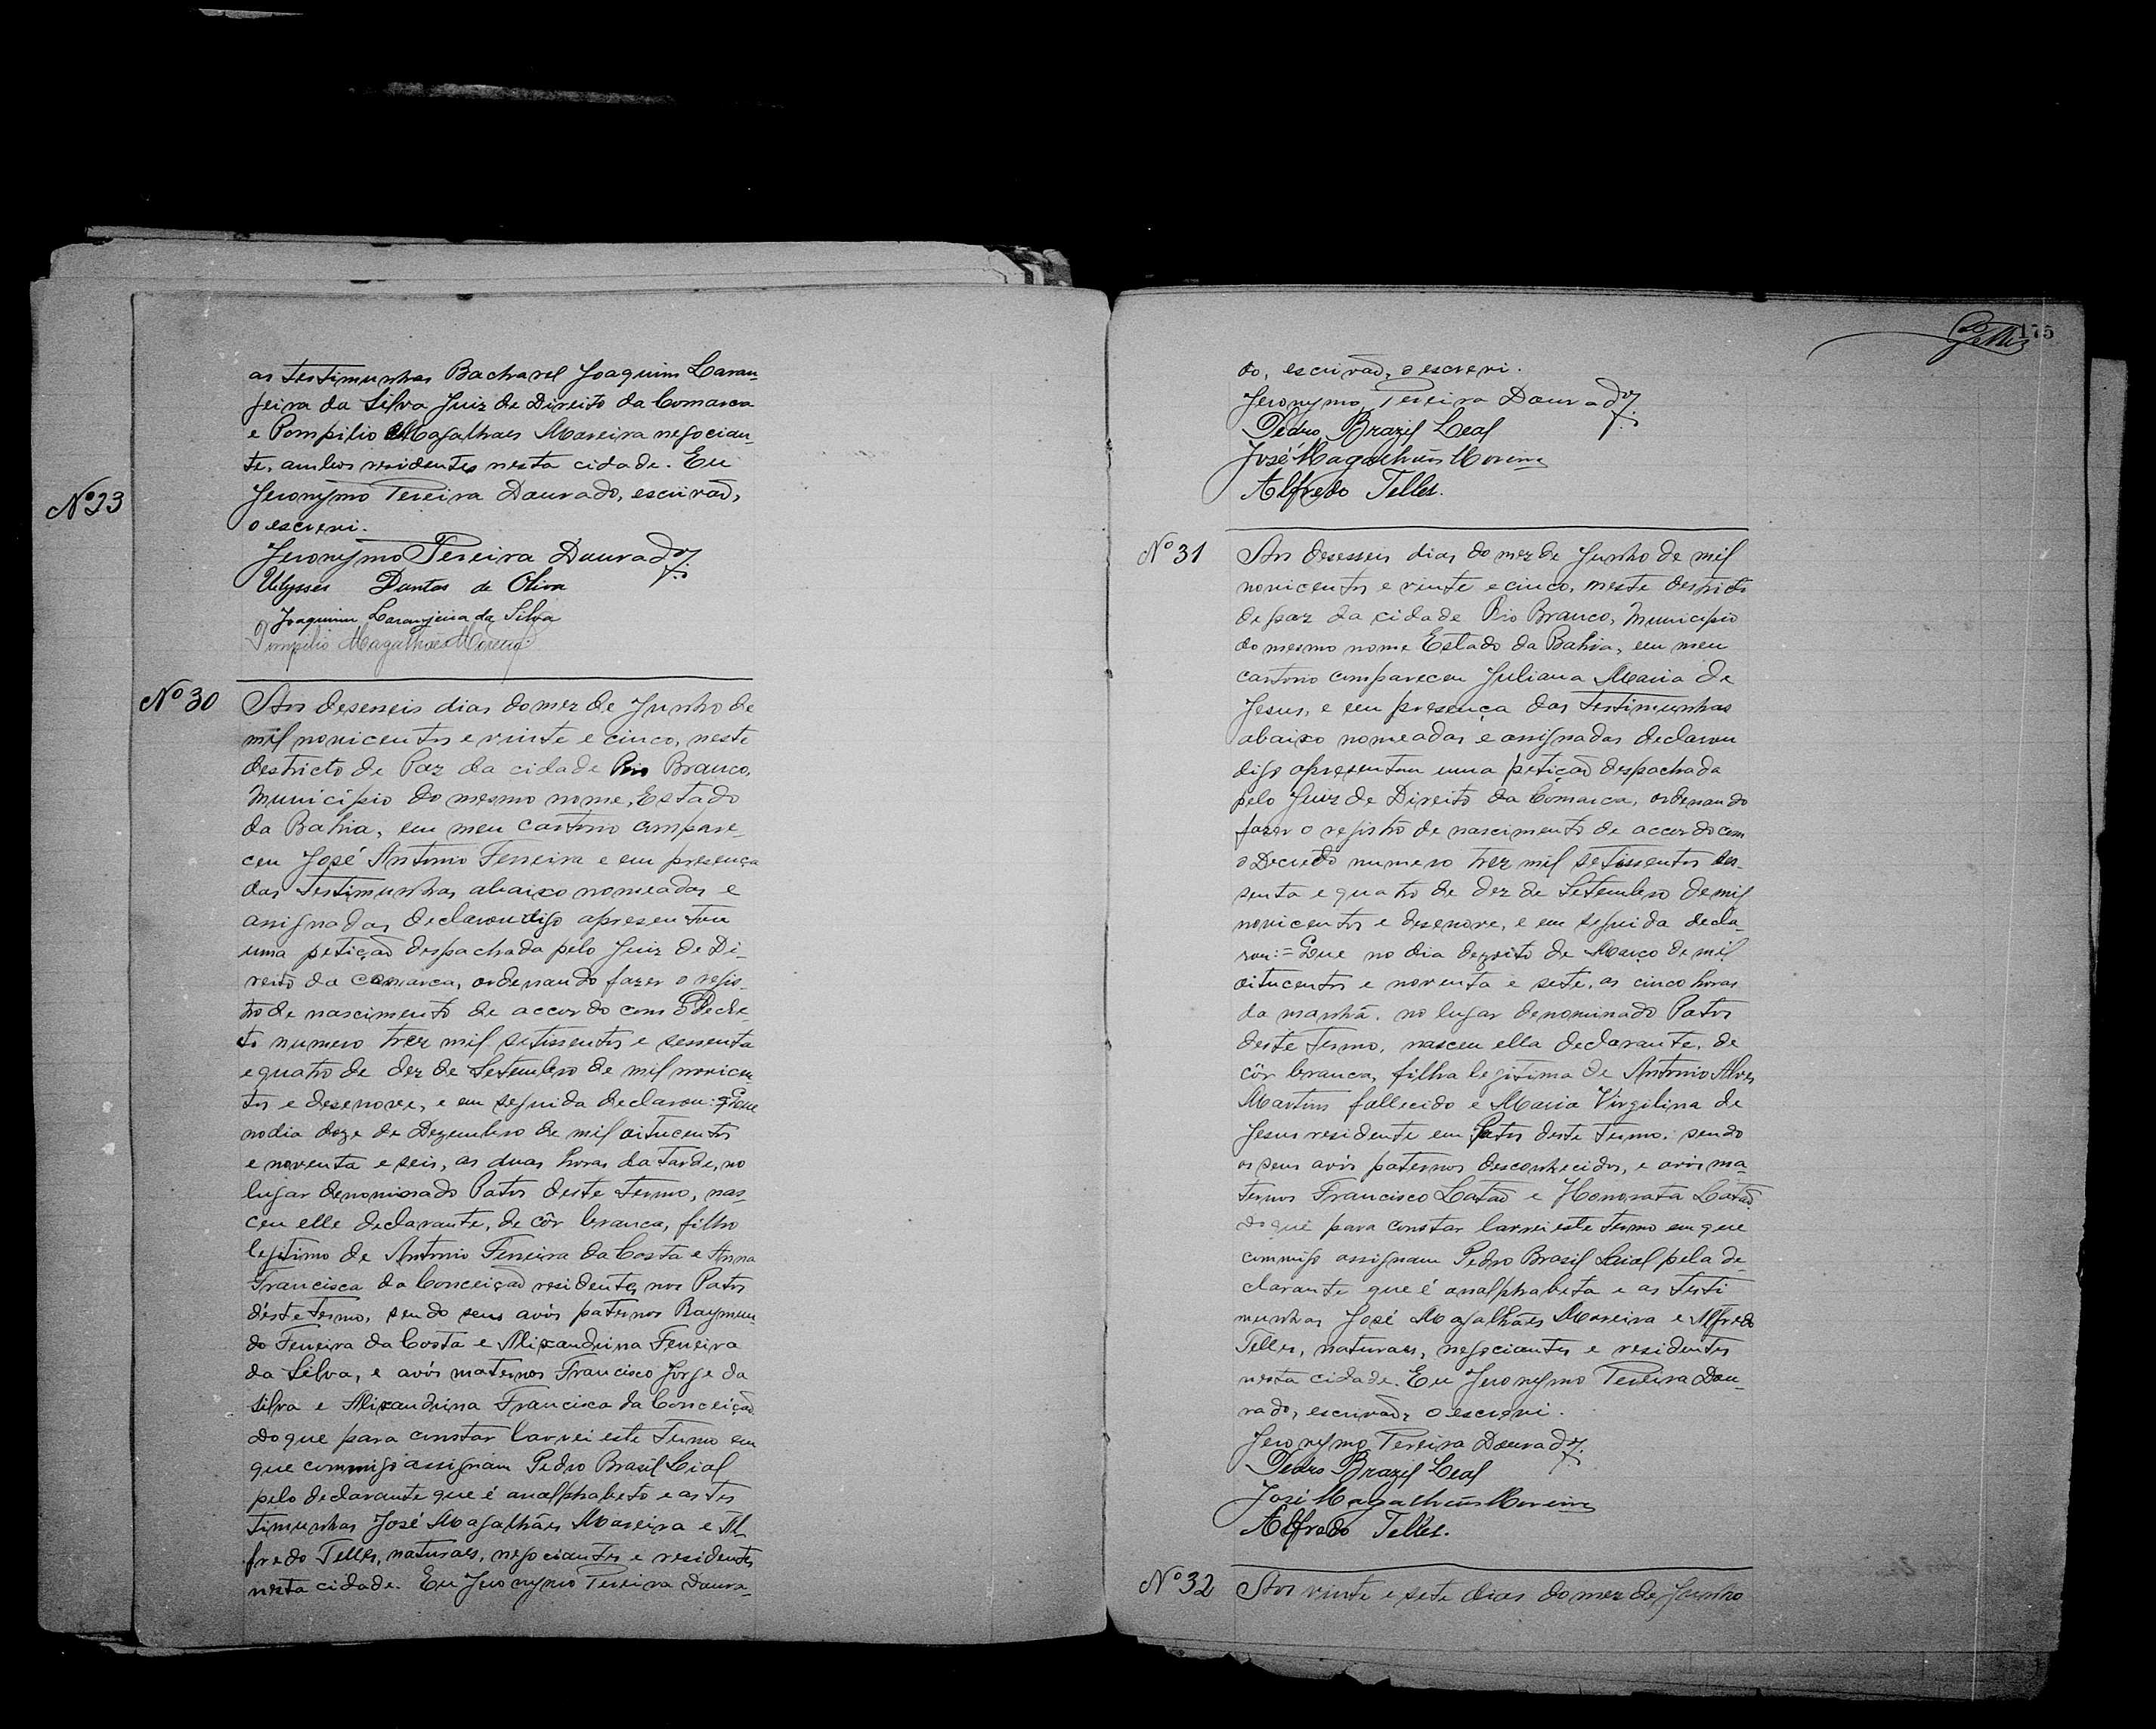 as testimunhas Bacharel Joaquim Laran-
jeira da Silva Juiz de Direito da Comarca
e Pompilio Magalhaes Moreira negocian-
te, ambos residentes nesta cidade. Eu
Jeronymo Pereira Dourado, escrivaõ,
o escrevi.
Jeronymo Pereira Dourado
Ulysses Dantas de Oliva
Joaquim Laranjeira da Silva
Pompilio Magalhães Moreira
Nº 23
Nº 30
Aos deseseis dias do mez de Junho de
mil novicentos e vinte e cinco, neste
destricto de Paz da cidade Rio Branco,
Municipio do mesmo nome, Estado
da Bahia, em meu cartorio compare-
ceu José Antonio Ferreira e em presença
das testimunhas abaixo nomeadas e
assignadas declarou digo apresentou
uma petiçaõ despachada pelo Juiz de Di-
reito da Comarca, ordenando fazer o regis-
tro de nascimento de accordo com o Decre-
to numero trez mil setissentos e sessenta
e quatro de dez de Setembro de mil novicen-
tos e desenove, e em seguida declarou: = Que
no dia doze de Dezembro de mil oitucentos
e noventa e seis, as duas horas da tarde, no
lugar denominado Patos deste termo, nas-
ceu elle declarante, de côr branca, filho
legitimo de Antonio Ferreira da Costa e Anna
Francisca da Conceiçaõ residentes nos Patos
déste termo, sendo seus avós paternos Raymun-
do Ferreira da Costa e Alixandrina Ferreira
da Silva, e avós maternos Francisco Jorge da
Silva e Alixandrina Francisca da Conceiçaõ
Do que para constar lavrei este termo em
que commigo assignam Pedro Brasil Lial
pelo declarante que é analphabeto e as tes
timunhas José Magalhães Moreira e Al
fredo Telles, naturaes, negociantes e residentes
nesta cidade. Eu Jeronymo Pereira Doura-
175
do, escrivaõ, o escrevi.
Jeronymo Pereira Dourado
Pedro Brazil Leal
José Magalhães Moreira
Alfredo Telles.
Nº 31
Aos desesseis dias do mez de Junho de mil
novicentos e vinte e cinco, neste destricto
de paz da cidade Rio Branco, Municipio
do mesmo nome Estado da Bahia, em meu
cartorio compareceu Juliana Maria de
Jesus, e em presença das testimunhas
abaixo nomeadas e assignadas declarou
digo apresentou uma petiçaõ despachada
pelo Juiz de Direito da Comarca, ordenando
fazer o registro de nascimento de accordo com
o Decreto numero trez mil setissentos ses-
senta e quatro de dez de Setembro de mil
novicentos e desenove, e em seguida decla-
rou: = Que no dia dezoito de Março de mil
oitucentos e noventa e sete, as cinco horas
da manhã, no lugar denominado Patos
deste termo, nasceu ella declarante, de
côr branca, filha legitima de Antonio Alves
Martins fallecido e Maria Virgilina de
Jesus residente em Patos deste termo, sendo
os seus avós paternos desconhecidos, e avós ma-
ternos Francisco Cataõ e Honorata Cataõ
do que para constar lavrei este termo em que
commigo assignam Pedro Brasil Leial pela de
clarante que é analphabeta e as testi
munhas José Magalhães Moreira e Alfredo
Telles, naturaes, negociantes e residentes
nesta cidade. Eu Jeronymo Pereira Dou-
rado, escrivaõ, o escrevi.
Jeronymo Pereira Dourado
Pedro Brazil Leal
José Magalhães Moreira
Alfredo Telles.
Nº 32
Aos vinte e sete dias do mez de Junho